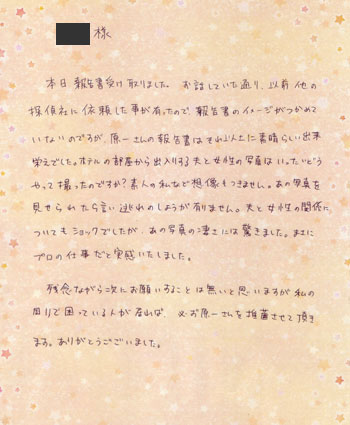 様
本日報告書受け取りました。お話していた通り、以前他の
探偵社に依頼した事が有ったので、報告書のイメージがつかめて
いないのですが、原一さんの報告書はそれ以上に素晴らしい出来
栄えでした。ホテルの部屋から出入りする夫と女性の写真はいったいどう
やって撮ったのですか?素人の私など想像もつきません。あの写真を
見せられたら言い逃れのしようが有りません。夫と女性の関係に
ついてもショックでしたが、あの写真の凄さには驚きました。まさに
プロの仕事だと実感いたしました。
残念ながら次にお願いすることは無いと思いますが私の
周りで困っている人が居れば、必ず原一さんを推薦させて頂き
ます。ありがとうございました。